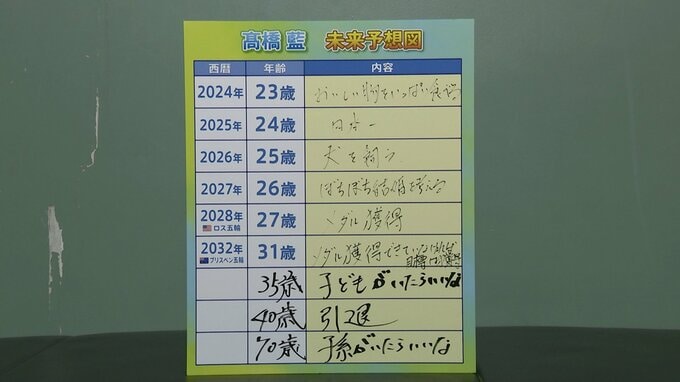 髙橋 藍 未来予想図
西暦 年齢 内容
2024年 23歳 おいしい物をいっぱい食べる
2025年 24歳 日本一
2026年 25歳 犬を飼う
2027年 26歳 ぼちぼち結婚を考える
2028年 27歳 メダル獲得
ロス五輪
2032年 31歳 メダル獲得できていなければ
ブリスベン五輪 目標
35歳 子どもがいたらいいな
40歳 引退
70歳 子孫がいたらいいな